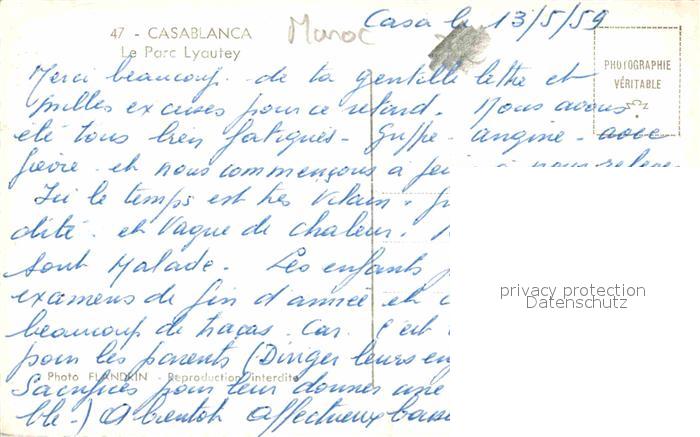 47 - CASABLANCA
Le Parc Lyautey
Maroc
Casa le 13/5/59
PHOTOGRAPHIE
VÉRITABLE
Merci beaucoup de ta gentille lettre et
milles excuses pour ce retard. Nous avons
été tous très fatigués - Grippe - angine - avec
fièvre et nous commençons à
Ici le temps est très vilain.
dité et vague de chaleur.
sont malade. Les enfants
examens de fin d'année et
beaucoup de tracas. Car. c'est
pour les parents (Diriger leurs
Photo FLANDRIN - Reproduction interdite
Sacrifices pour leur donner une
ble-) A bientôt affectueux
privacy protection
Datenschutz